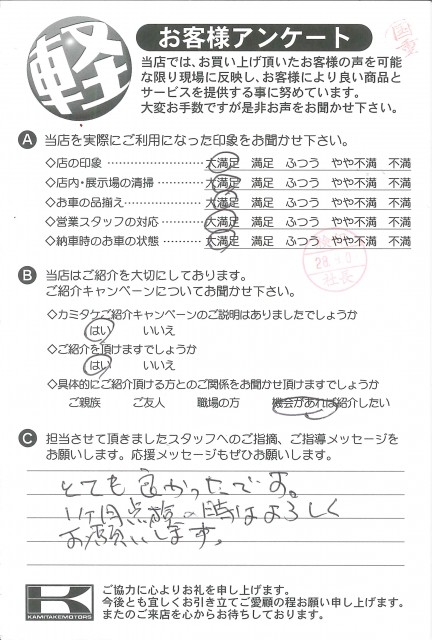 軽
お客様アンケート
当店では、お買い上げ頂いたお客様の声を可能
な限り現場に反映し、お客様により良い商品と
サービスを提供する事に努めています。
大変お手数ですが是非お声をお聞かせ下さい。
A 当店を実際にご利用になった印象をお聞かせ下さい。
◇店の印象 ・・・・・・・・・・ 大満足 満足 ふつう やや不満 不満
◇店内・展示場の清掃 ・・・・・ 大満足 満足 ふつう やや不満 不満
◇お車の品揃え・・・・・・・・ 大満足 満足 ふつう やや不満 不満
◇営業スタッフの対応 ・・・・ 大満足 満足 ふつう やや不満 不満
◇納車時のお車の状態 ・・・・ 大満足 満足 ふつう やや不満 不満
社長
B 当店はご紹介を大切にしております。
ご紹介キャンペーンについてお聞かせ下さい。
◇カミタケご紹介キャンペーンのご説明はありましたでしょうか
はい いいえ
◇ご紹介を頂けますでしょうか
はい いいえ
◇具体的にご紹介頂ける方とのご関係をお聞かせ頂けますでしょうか
ご親族 ご友人 職場の方 機会があれば紹介したい
C 担当させて頂きましたスタッフへのご指摘、ご指導メッセージを
お願いします。応援メッセージもぜひお願いします。
とても良かったです。
1ヶ月点検の時はよろしく
お願いします。
KAMITAKEMOTORS
ご協力に心よりお礼を申し上げます。
今後とも宜しくお引き立てご愛顧の程お願い申し上げます。
またのご来店を心からお待ちしております。